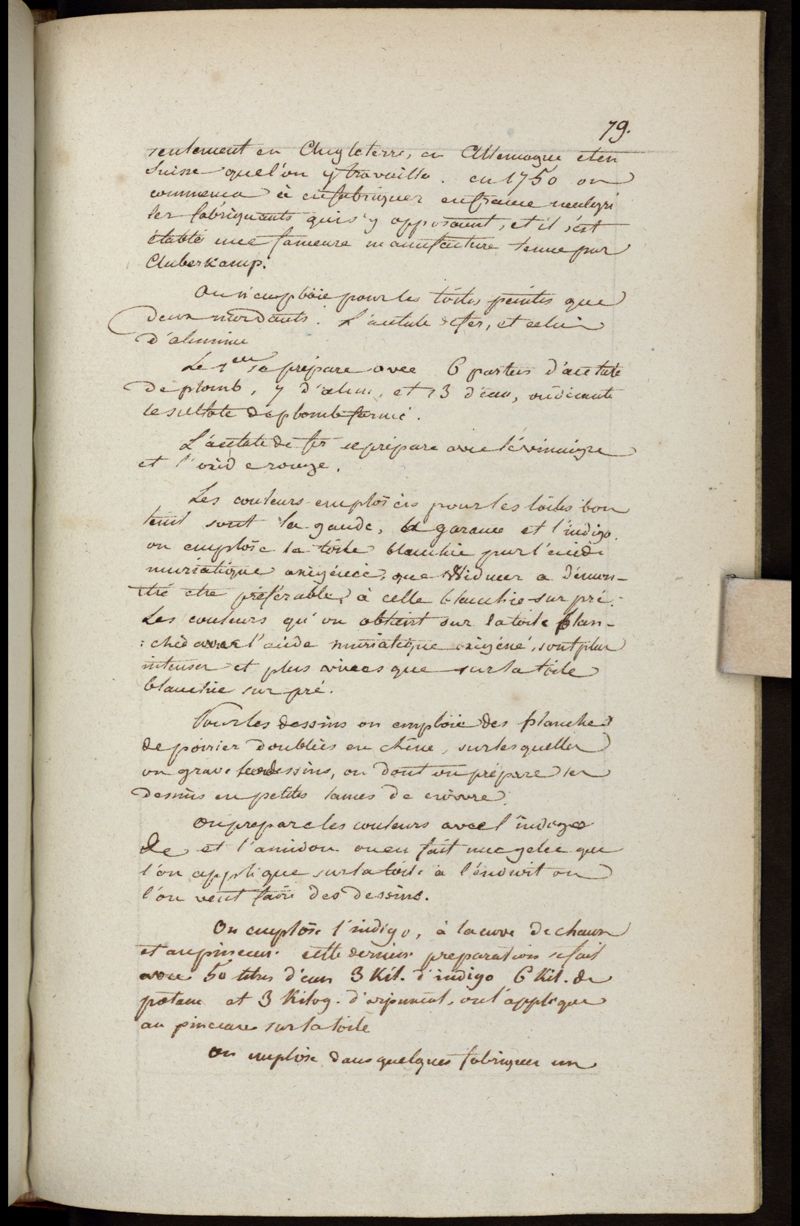 79.
seulement en Angleterre, en Allemagne et en
Suisse que l'on y travailla. en 1750 on
commença à en fabriquer en france malgré
les fabriquants qui s'y opposaient, et il s'est
établi une fameuse manufacture tenue par
Auberkamp.
On n'emploie pour les toiles peintes que
deux mordants. L'acétate de fer, et celui
d'alumine
Le 1er se prépare avec 6 parties d'acétate
de plomb, 7 d'alun, et 13 d'eau, on décante
le sulfate de plomb formé.
L'acétate de fer se prépare avec le vinaigre
et l'oxide rouge.
Les couleurs emploiées pour les toiles bon
teint sont la gaude, la garance et l'indigo.
on emploie la toile blanchie par l'acide
muriatique oxigénée, que Widmer a démon-
tré être préférable à celle blanchie sur pré.
Les couleurs qu'on obtient sur la toile blan-
:chie avec l'acide muriatique oxigéné, sont plus
intenses et plus vives que sur la toile
blanchie sur pré.
Pour les dessins on emploie des planches
de poirier doublées en chêne, sur lesquelles
on grave les dessins, ou dont on prépare les
dessins en petites lames de cuivre.
On prepare les couleurs avec l'indigo
et l'amidon on en fait une gelée que
l'on applique sur la toile à l'endroit où
l'on veut faire des dessins.
On emploie l'indigo, à la cuve de chaux
et au pinceau. cette derniere preparation se fait
avec 50 litres d'eau 3 Kil. d'indigo 6 Kil. de
potasse et 3 Kilog. d'orpiment, on l'applique
au pinceau sur la toile
On emploie dans quelques fabriques un